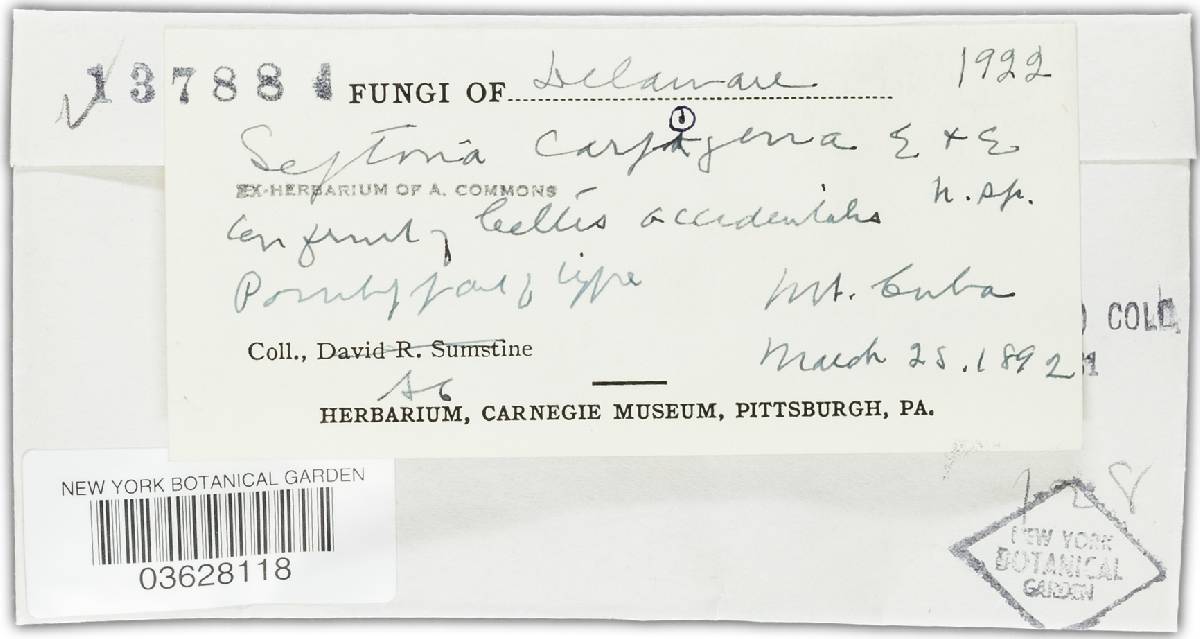 137884
FUNGI OF Delaware 1922
Septoria carpigena E & E
EX-HERBARIUM OF A. COMMONS n. sp.
on fruit of Celtis occidentalis
Possibly part of type Mt. Cuba
Coll., David R. Sumstine March 28, 1892
AC
HERBARIUM, CARNEGIE MUSEUM, PITTSBURGH, PA.
COLL.
NEW YORK BOTANICAL GARDEN
03628118
NEW YORK
BOTANICAL
GARDEN